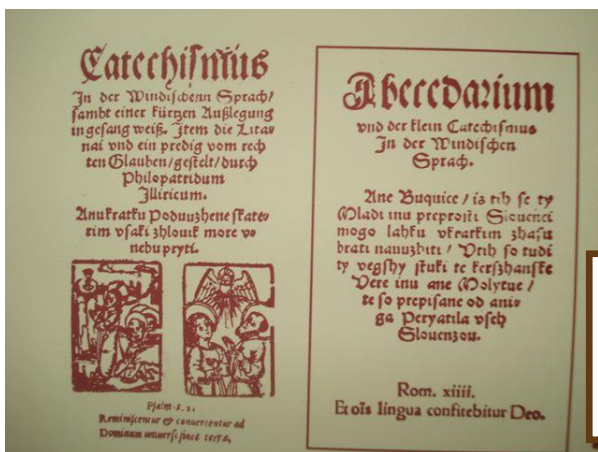 Catechismus
In der Windischenn Sprach/
sambt einer kürtzen Außlegung
in gesang weiß. Item die Litanai
vnd ein predig vom rechten
Glauben/gestelt/durch
Philopatridum
Illiricum.
Anu kratku Poduuzhene skaterim
vsaki zhlouik more vnebu
pryti.
Psalm. 8. 2.
Reminiscentur & conuertentur ad
Dominum uniuersi fines
Abecedarium
vnd der klein Catechismus
In der Windischen
Sprach.
Ane Buquice/ is tih se ty
Mladi inu preprosti Slouenci
mogo lahku vkratkim zhasu
brati nauuzhiti/ Vtih so tudi
ty vegshy stuki te kerszhanske
Vere inu ane Molytue/
te so prepisane od aniga
Peryatila vseh
Slouenzou.
Rom. xiiii.
Et ois lingua confitebitur Deo.